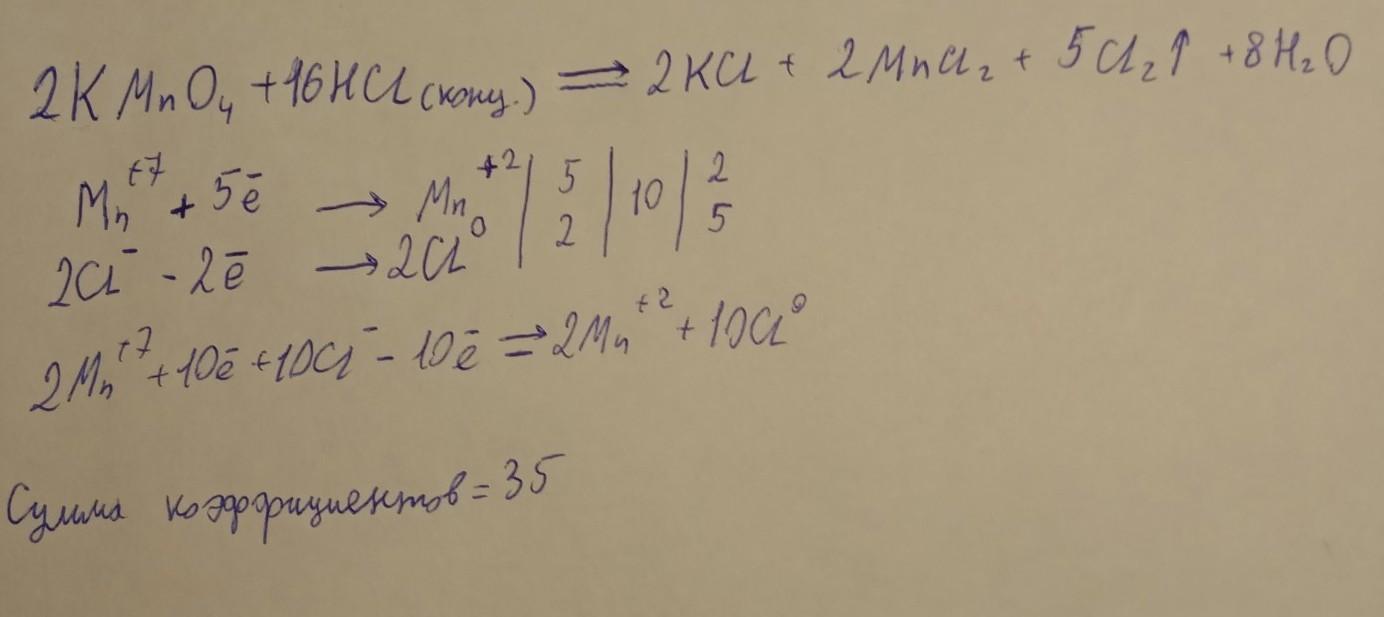 2KMnO₄ + 16HCl (конц.) ⇒ 2KCl + 2MnCl₂ + 5Cl₂↑ + 8H₂O
Mn⁺⁷ + 5ē → Mn⁺² | 5 | 10 | 2
2Cl⁻ - 2ē → 2Cl⁰ | 2 | | 5
2Mn⁺⁷ + 10ē + 10Cl⁻ - 10ē ⇒ 2Mn⁺² + 10Cl⁰
Сумма коэффициентов = 35